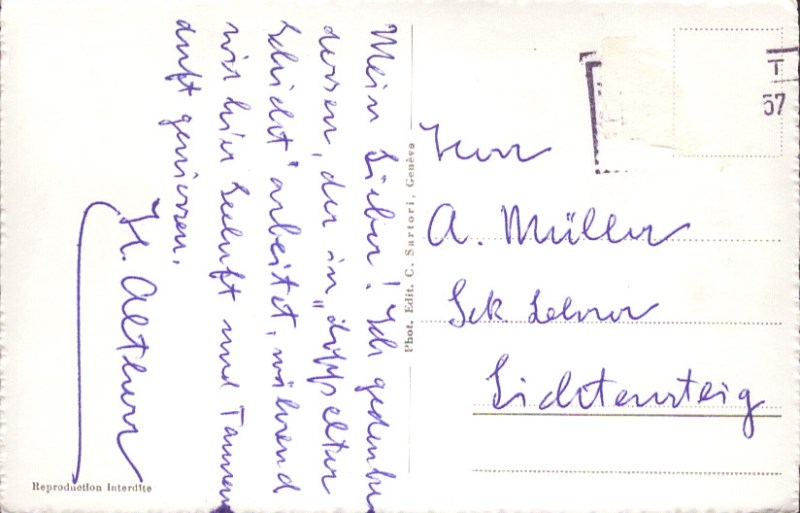 Mein Lieber! Ich gedenke
dessen, der in „doppelter
Schicht" arbeitet, während
wir hier Seeluft und Tannen
duft geniessen.
H. Altherr
Phot. Edit. C. Sartori, Genève
Herr
A. Müller
Sek Lehrer
Lichtensteig
Reproduction Interdite
T
57